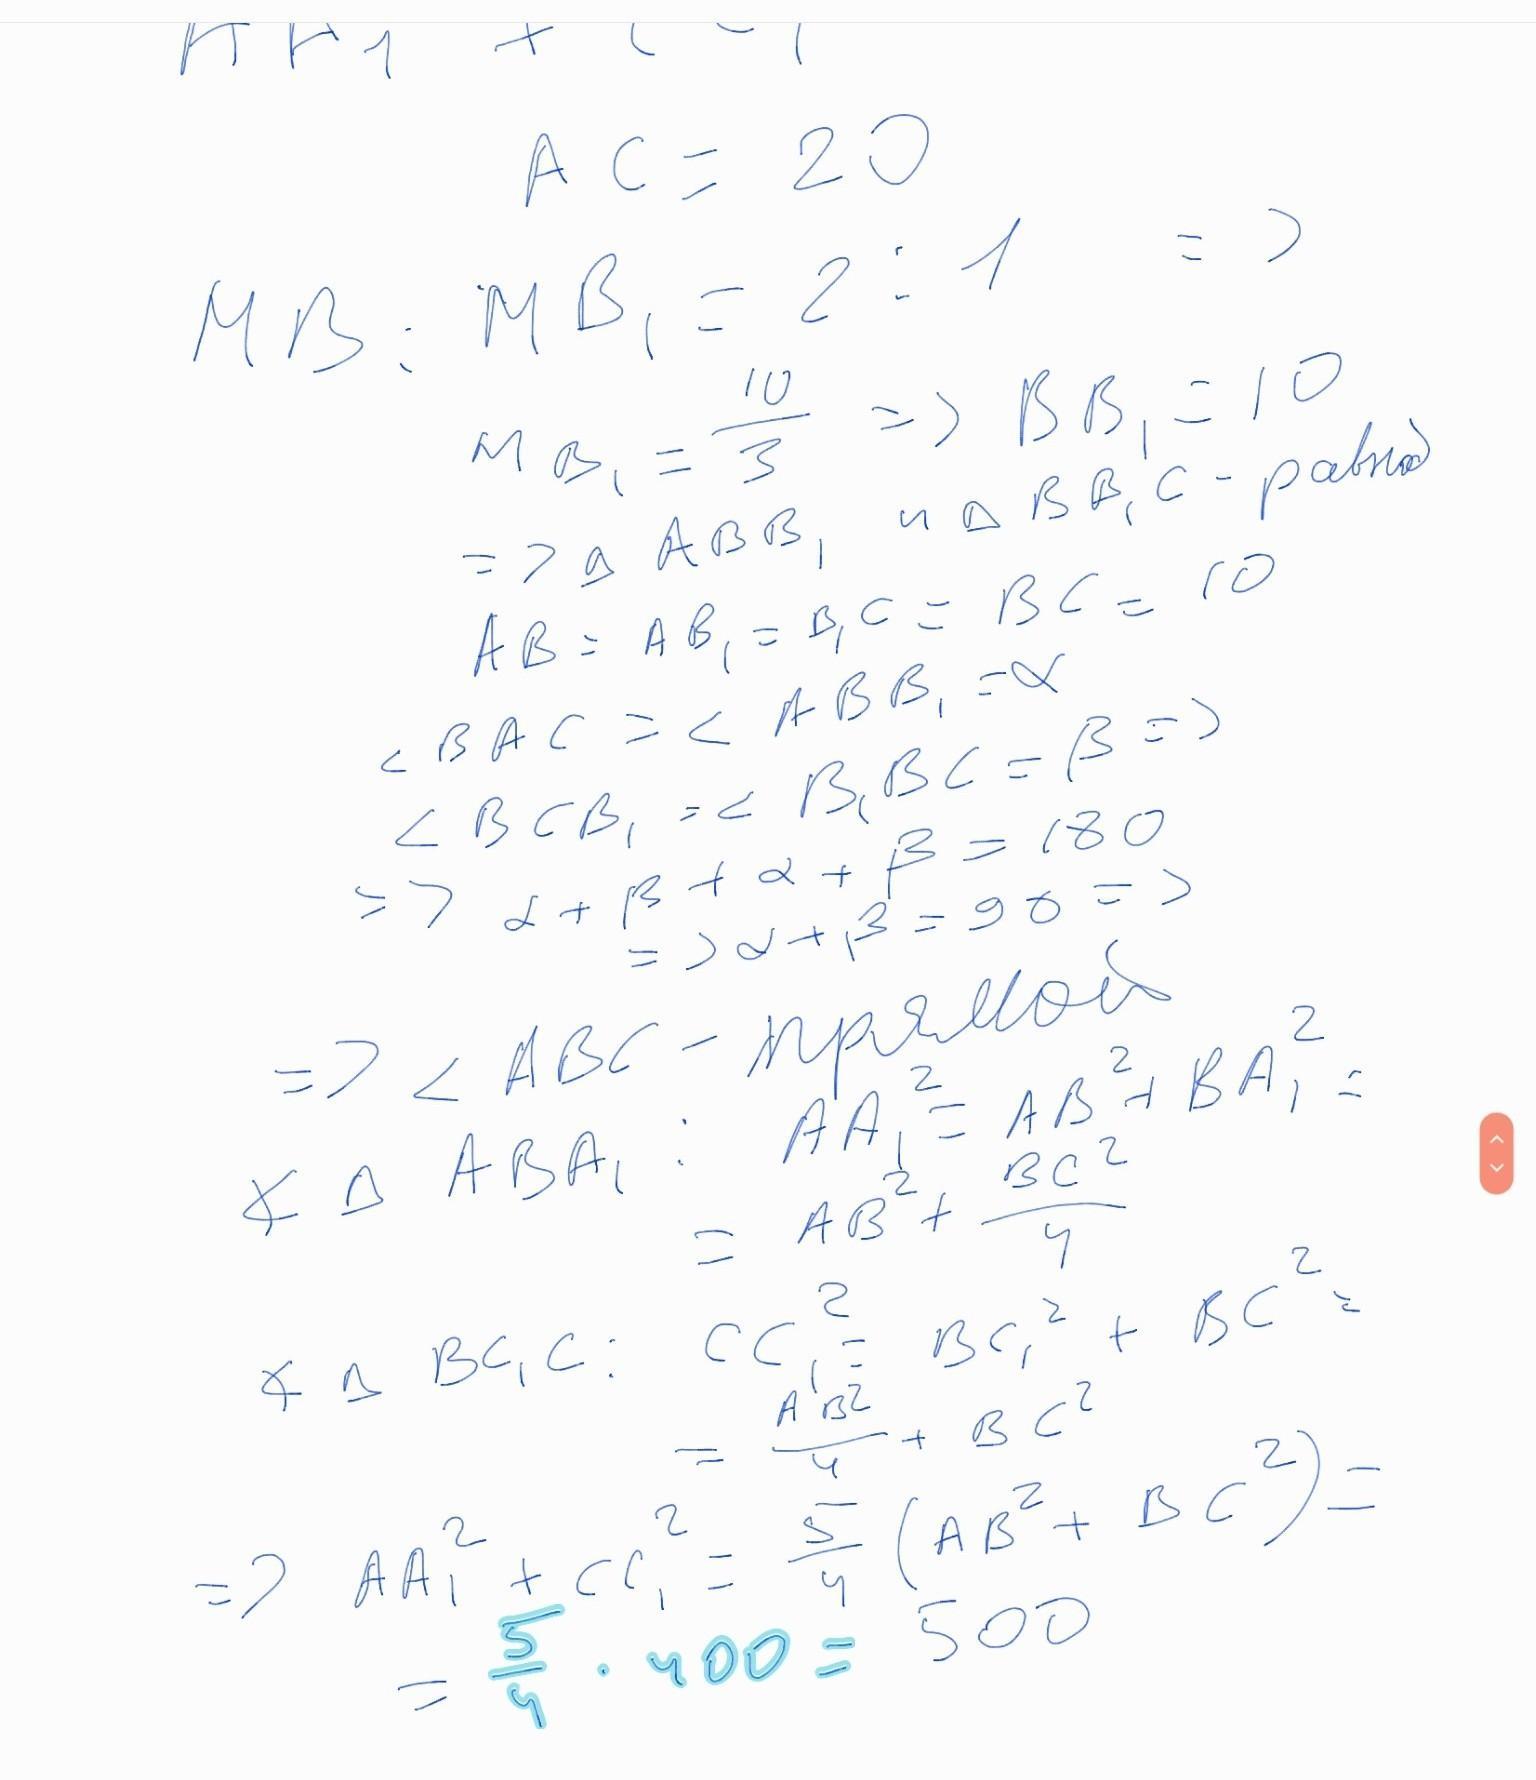 AA₁ +
AC = 20
MB : MB₁ = 2 : 1 =>
MB₁ = 10/3 => BB₁ = 10
=> △ ABB₁ и △ BB₁C - равноб
AB = AB₁ = B₁C = BC = 10
∠BAC = ∠ABB₁ = α
∠BCB₁ = ∠B₁BC = β =>
=> α + β + α + β = 180
=> α + β = 90 =>
=> ∠ABC - прямой
∢ △ ABA₁ : AA₁² = AB² + BA₁² =
= AB² + BC²/4
∢ △ BC₁C : CC₁² = BC₁² + BC² =
= AB²/4 + BC²
=> AA₁² + CC₁² = 5/4 (AB² + BC²) =
= 5/4 · 400 = 500